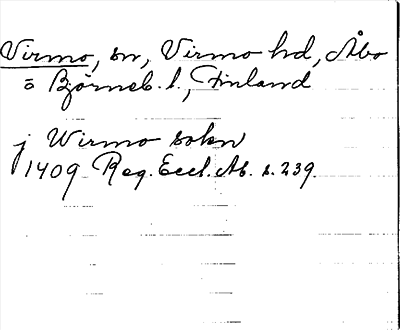 Virmo, sn, Virmo hd, Åbo
o Björneb. l., Finland
j Wirmo sokn
1409 Reg. Eccl. Ab. s. 239.